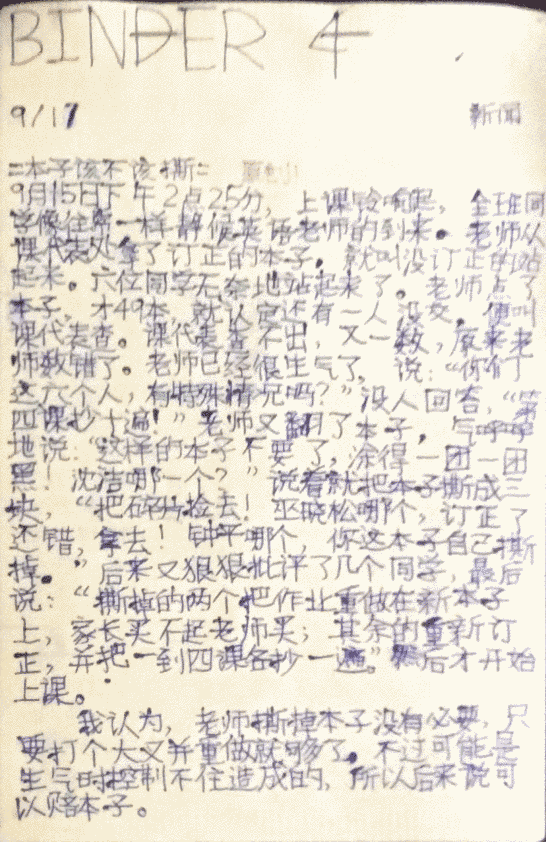 BINDER 4
9/17 新闻
=本子该不该撕=
9月15日下午2点25分，上课铃响起，全班同
学像往常一样静候英语老师的到来。老师从
课代表处拿了订正的本子，就叫没订正的站
起来。六位同学无奈地站起来了。老师点了
本子，才49本，就认定还有一人没交，便叫
课代表查。课代表查不出，又一数，原来老
师数错了。老师已经很生气了，说：“你们
这六个人，有特殊情况吗？”没人回答，“第
四课抄十遍！”老师又翻开了本子，气呼呼
地说：“这样的本子不要了，涂得一团一团
黑！沈浩哪一个？”说着就把本子撕成三
块，“把碎片捡去！巫晓松哪个，订正了
还错，拿去！钟平哪个，你这本子自己撕
掉。”后来又狠狠批评了几个同学，最后
说：“撕掉的两个把作业重做在新本子
上，家长买不起老师买；其余的重新订
正，并把一到四课各抄一遍。”然后才开始
上课。
我认为，老师撕掉本子没有必要，只
要打个大叉并重做就够了。不过可能是
生气时控制不住造成的，所以后来说可
以赔本子。